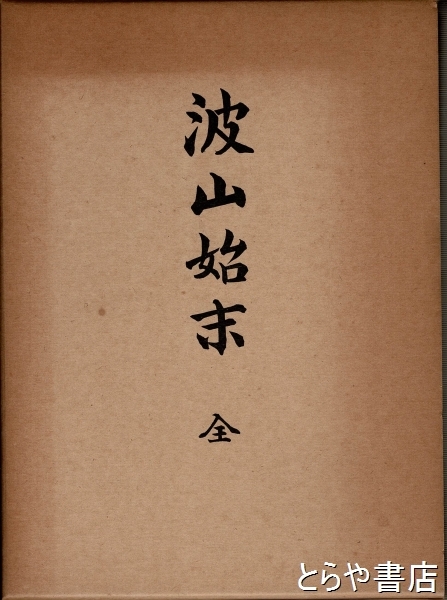 波山始末
全
とらや書店